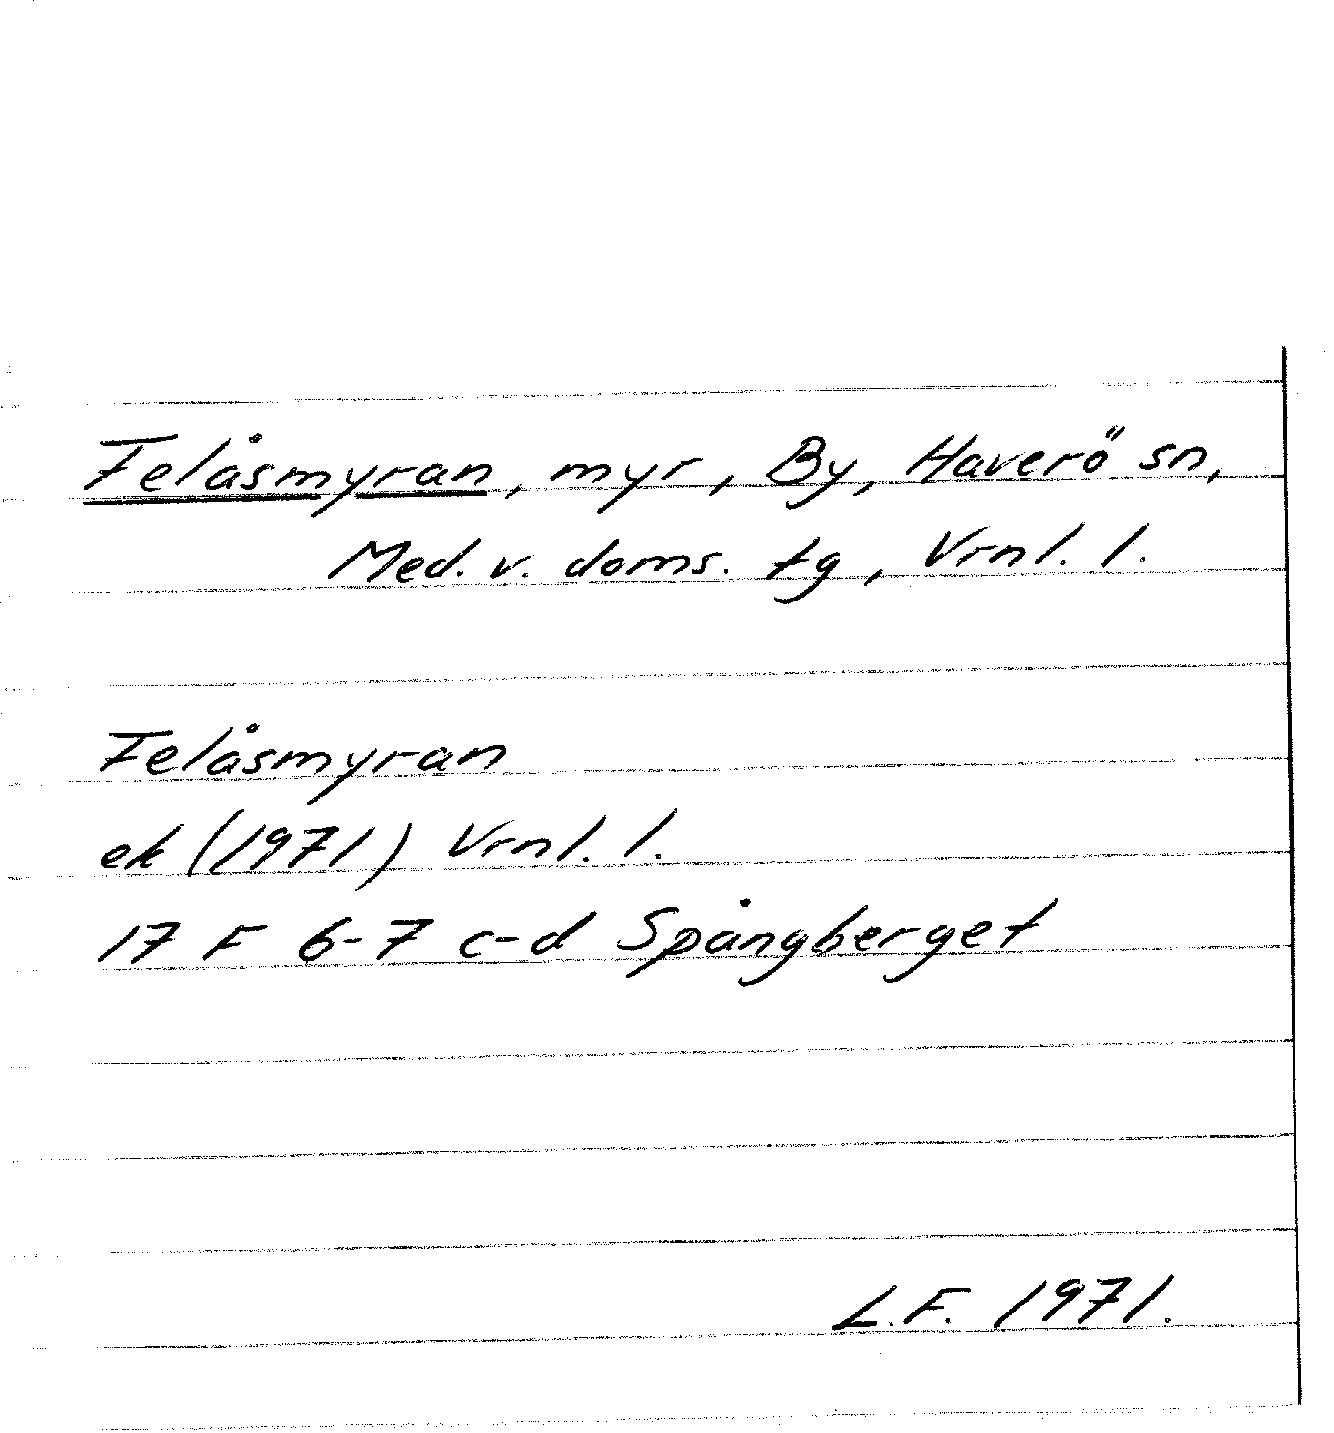 Felåsmyran, myr, By, Haverö sn,
Med. v. doms. tg, Vrnl. l.
Felåsmyran
ek (1971) Vrnl. l.
17 F 6-7 c-d Spångberget
L.F. 1971.